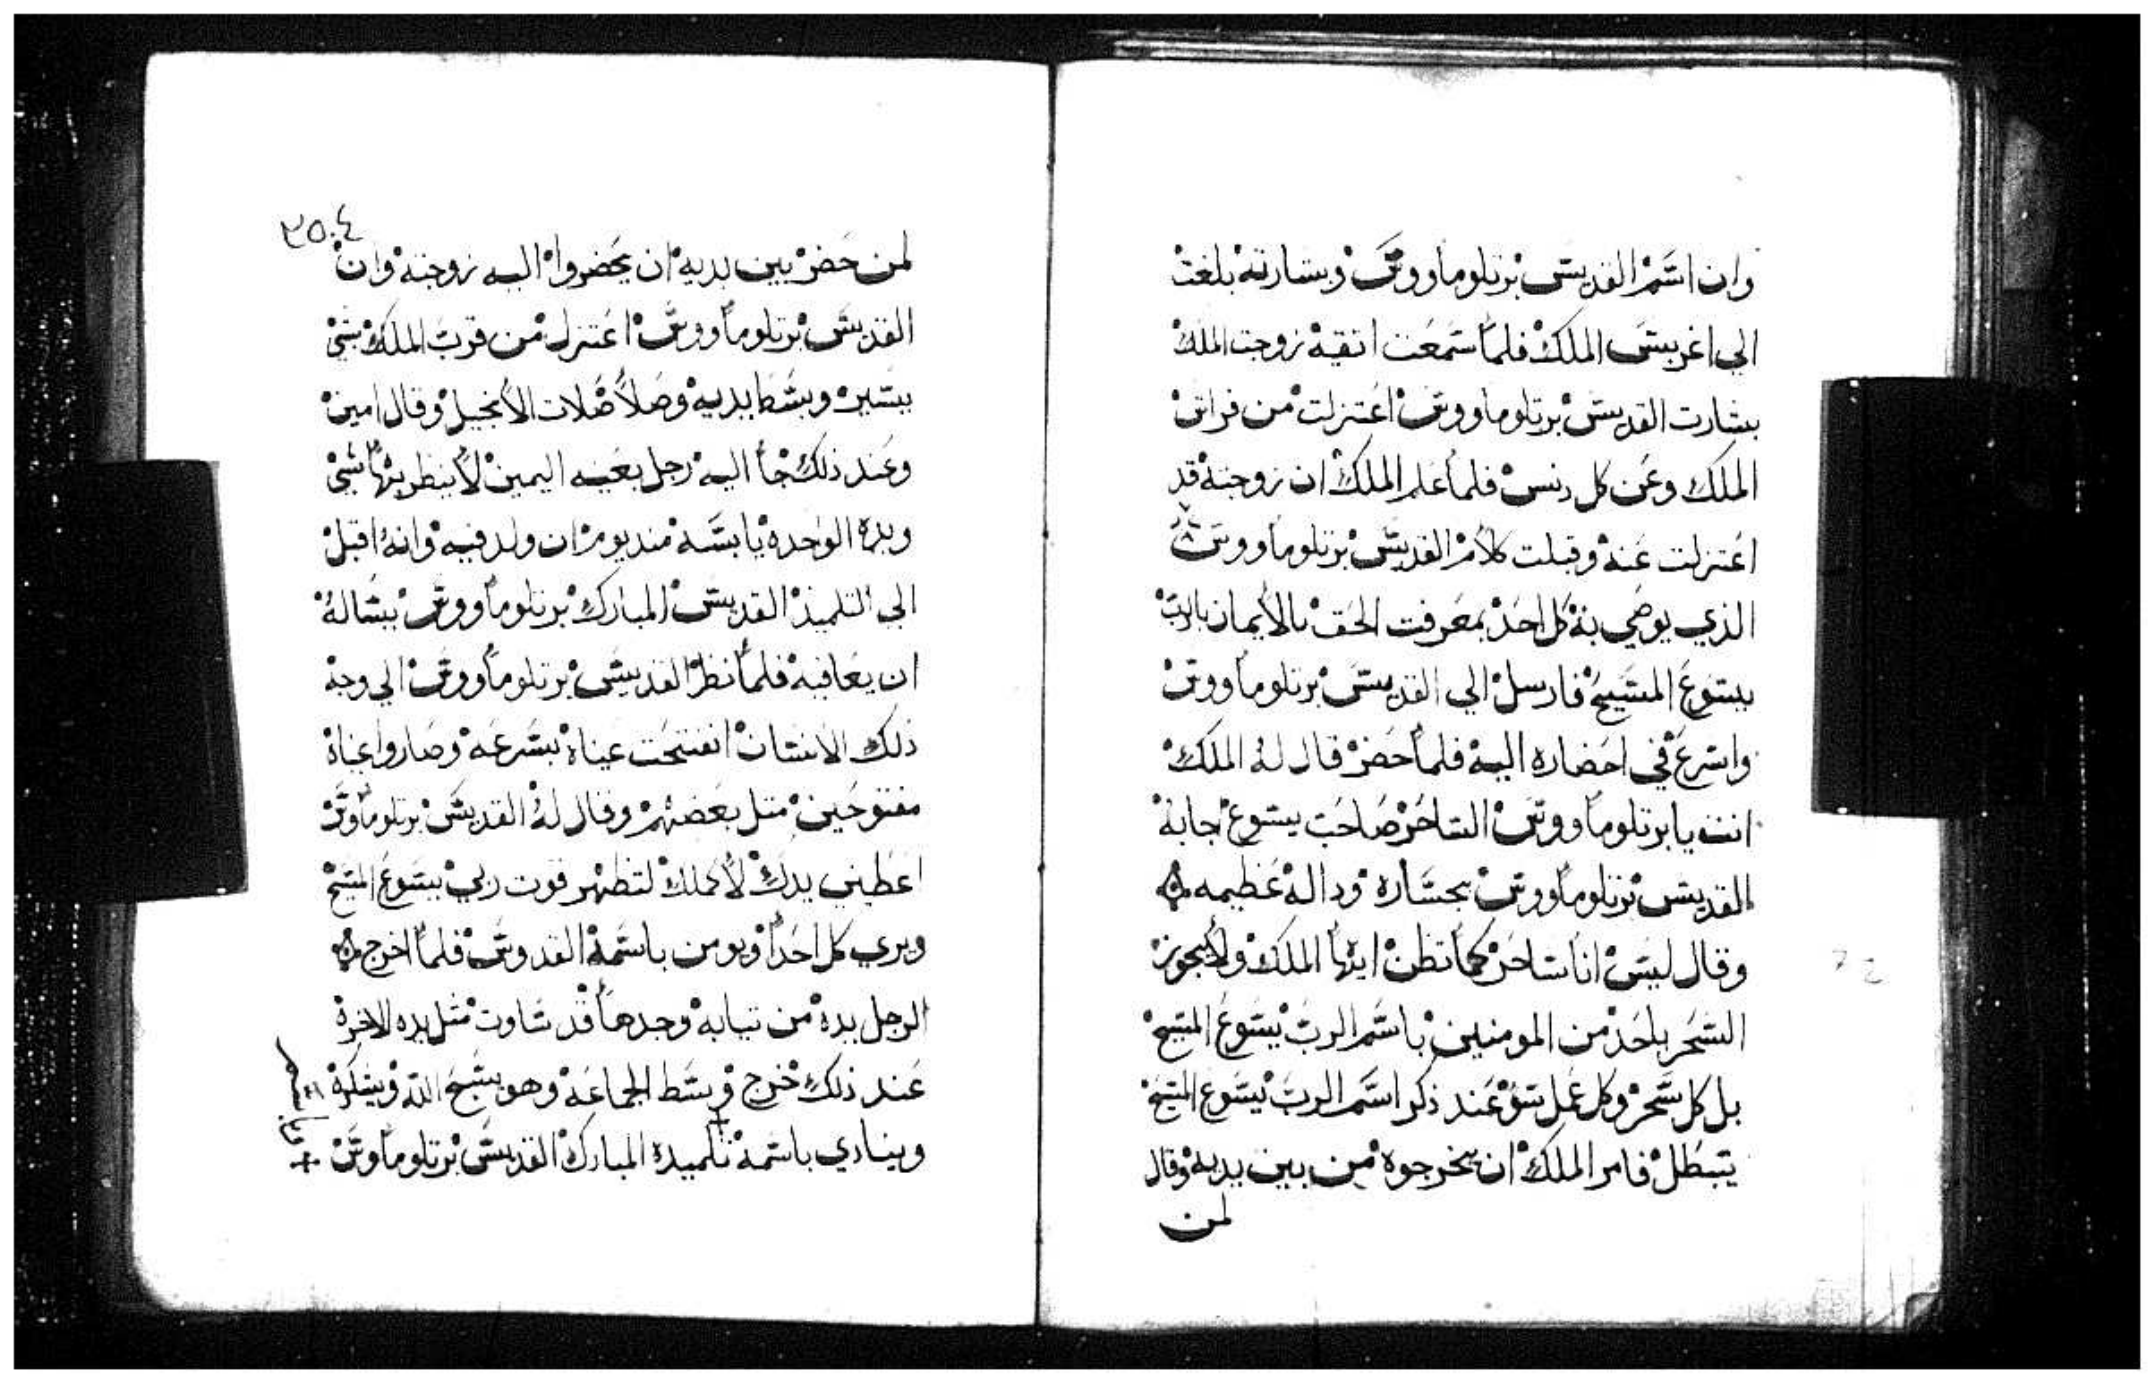 وان اسم القديس برتلوماووس وبشارته بلغت
الي اغربيس الملك فلما سمعت انقيه زوجت الملك
بشارت القديس برتلوماووس اعتزلت من فراش
الملك وعن كل دنس فلما علم الملك ان زوجته قد
اعتزلت عنه وقبلت كلام القديس برتلوماووس
الذي يوصي به كل احد بمعرفت الحق بالايمان بالرب
يسوع المسيح فارسل الي القديس برتلوماووس
واسرع في احضاره اليه فلما حضر قال له الملك
انت يا برتلوماووس الساحر صاحب يسوع اجابه
القديس برتلوماووس بجساره وداله عظيمه
وقال ليس انا ساحر كما تظن ايها الملك ولا يجوز
السحر باحد من المومنين باسم الرب يسوع المسيح
بل كل سحر وكل عمل سو عند ذكر اسم الرب يسوع المسيح
يتبطل فامر الملك ان يخرجوه من بين يديه وقال
لمن
لمن حضر بين يديه ان يحضروا اليه زوجته وان
القديس برتلوماووس اعتزل من قرب الملك بشي
يسير وبسط يديه وصلا صلات الانجيل وقال امين
وعند ذلك جا اليه رجل بعينه اليمين لا ينظر بها شي
ويده الواحده يابسه مند يوم ان ولد فيه وانه اقبل
الي التلميذ القديس المبارك برتلوماووس يساله
ان يعافيه فلما نظر القديس برتلوماووس الي وجه
ذلك الانسان انفتحت عيناه بسرعه وصاروا عيناه
مفتوحين متل بعضهم وقال له القديس برتلوماوس
اعطيني يدك لاكملك لتظهر قوت ربي يسوع المسيح
ويري كل احدا ويومن باسمه القدوس فلما اخرج
الرجل يده من تيابه وجدها قد تساوت مثل يده الاخره
عند ذلك خرج وسط الجماعه وهو يسبح الله ويشكره
وينادي باسمه تلميده المبارك القديس برتلوماوس